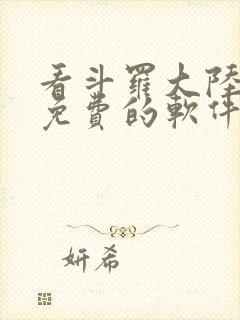 看斗羅大陸
免費的軟件
妍希